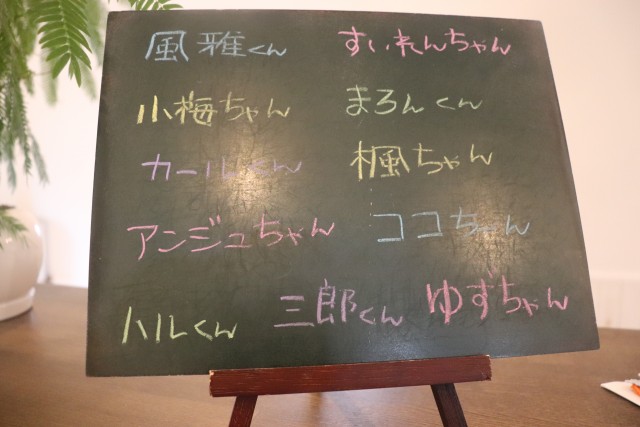 風雅くん すいれんちゃん
小梅ちゃん まろんくん
カールくん 楓ちゃん
アンジュちゃん ココちゃん
ハルくん 三郎くん ゆずちゃん